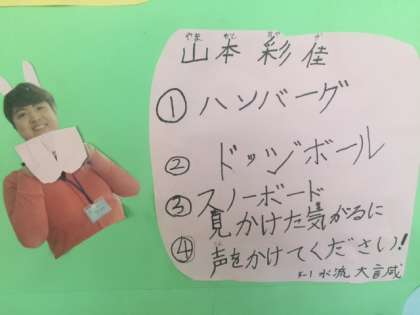 山本 彩佳
① ハンバーグ
② ドッジボール
③ スノーボード
見かけた気がるに
④ 声をかけてください!
水流 大誠